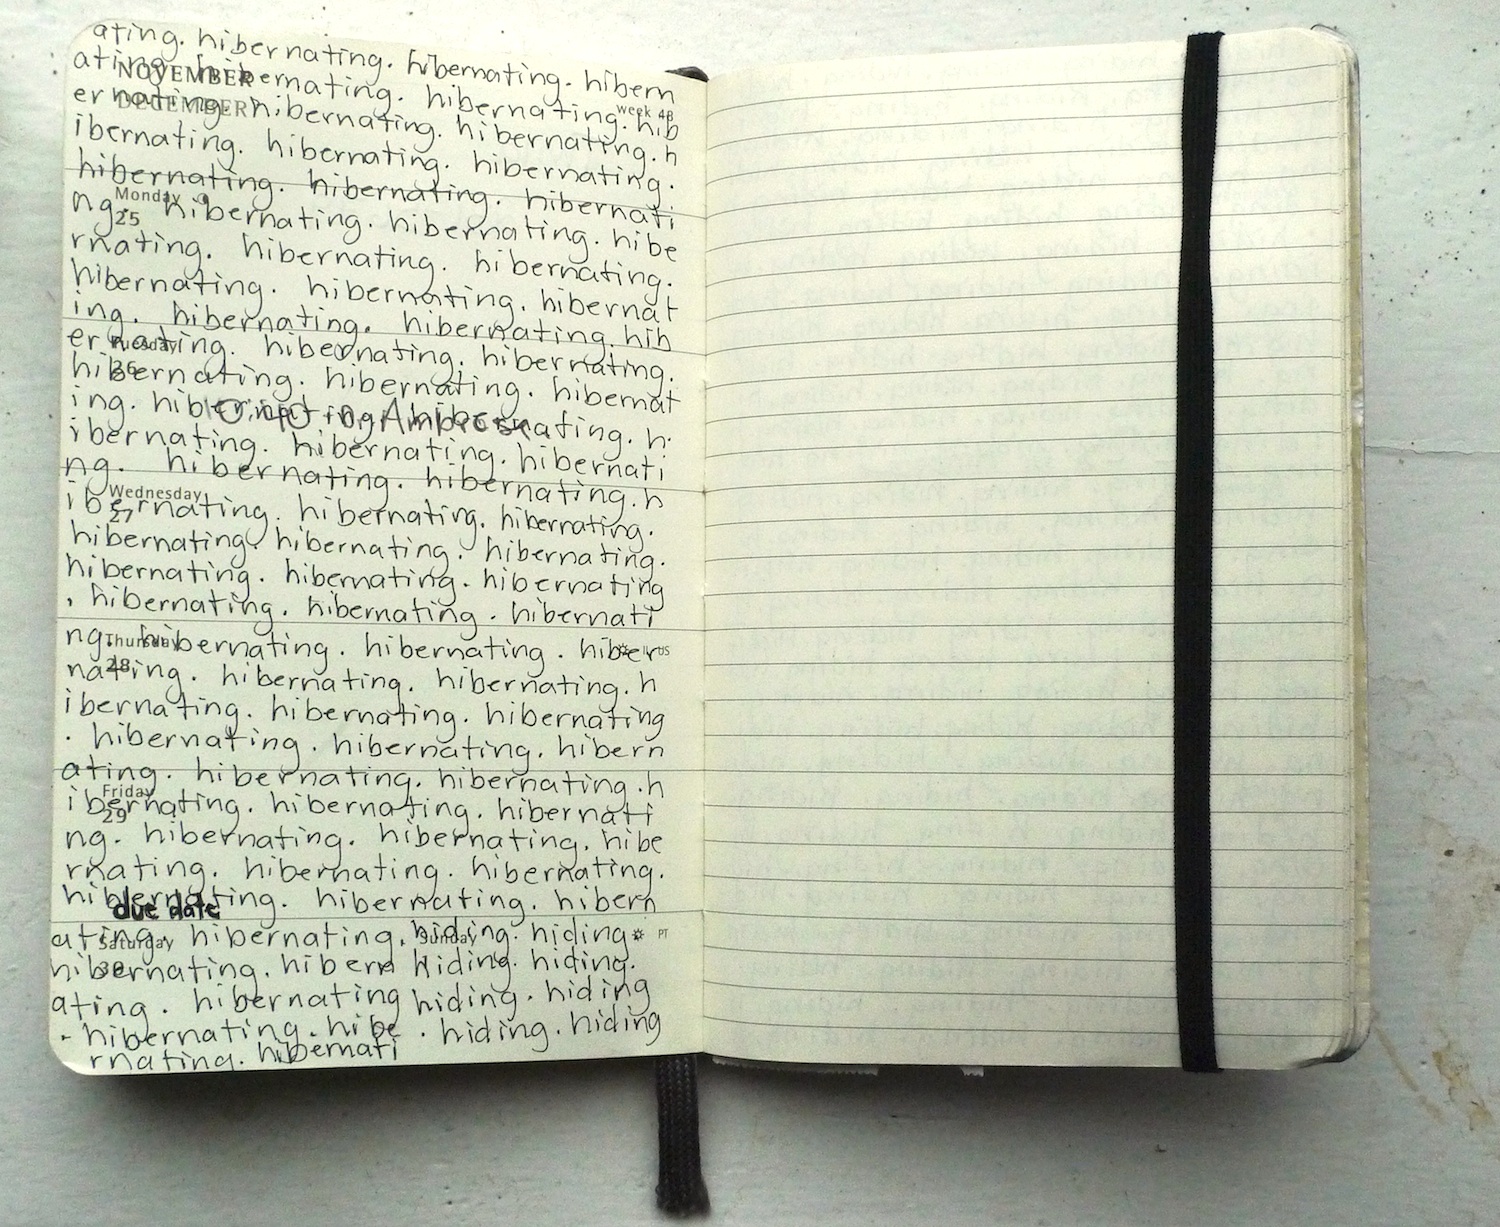 ating. hibernating. hibernating. hibern
ating. hibernating. hibernating. hib
NOVEMBER
ernating. hibernating. hibernating. h
DECEMBER
week 48
ibernating. hibernating. hibernating.
hibernating. hibernating. hibernati
Monday
25
ng. hibernating. hibernating. hibe
rnating. hibernating. hibernating.
hibernating. hibernating. hibernat
ing. hibernating. hibernating. hib
Tuesday
26
ernating. hibernating. hibernating.
hibernating. hibernating. hibernat
ing. hibernating. hibernating. h
ibernating. hibernating. hibernati
ng. hibernating. hibernating. h
Wednesday
27
ibernating. hibernating. hibernating.
hibernating. hibernating. hibernating.
hibernating. hibernating. hibernating
. hibernating. hibernating. hibernati
Thursday
28
US
ng. hibernating. hibernating. hiber
nating. hibernating. hibernating. h
ibernating. hibernating. hibernating
. hibernating. hibernating. hibern
ating. hibernating. hibernating. h
Friday
29
ibernating. hibernating. hibernati
ng. hibernating. hibernating. hibe
rnating. hibernating. hibernating.
hibernating. hibernating. hibern
due date
Saturday
30
ating. hibernating.
hibernating. hibern
ating. hibernating
. hibernating. hibe
rnating. hibernati
Sunday
PT
hiding. hiding
hiding. hiding.
hiding. hiding
. hiding. hiding